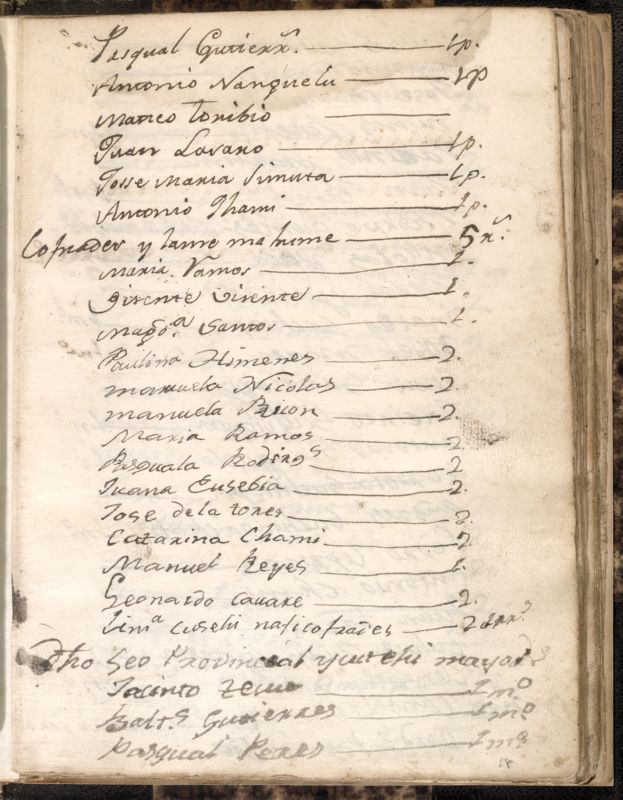 Pasqual Gutierrs. 1p.
Antonio Nanguelu 1p
Mateo Toribio
Juan Lavaro 1p.
Josse Maria Simuta 1p.
Antonio Jhami 1p.
Cofrades y lame ma hume 5 rs.
Maria Ramos 1.
Visente Visente 1.
Magda Santos 1.
Paulina Ximenes 2.
manuela Nicolas 2
manuela Ruon 2.
Maria Ramos 2
Pasquala Rodirgs 2
Juana Eusebia 2.
Jose dela tores 2.
Catarina Chami 2
Manuel Reyes 1.
Leonardo 2.
cofrades 2
Dho Seo Provincial mayor
Jacinto 1 mo
Balts Gutierres 1 mo
Pasqual Peres 1 mo
18